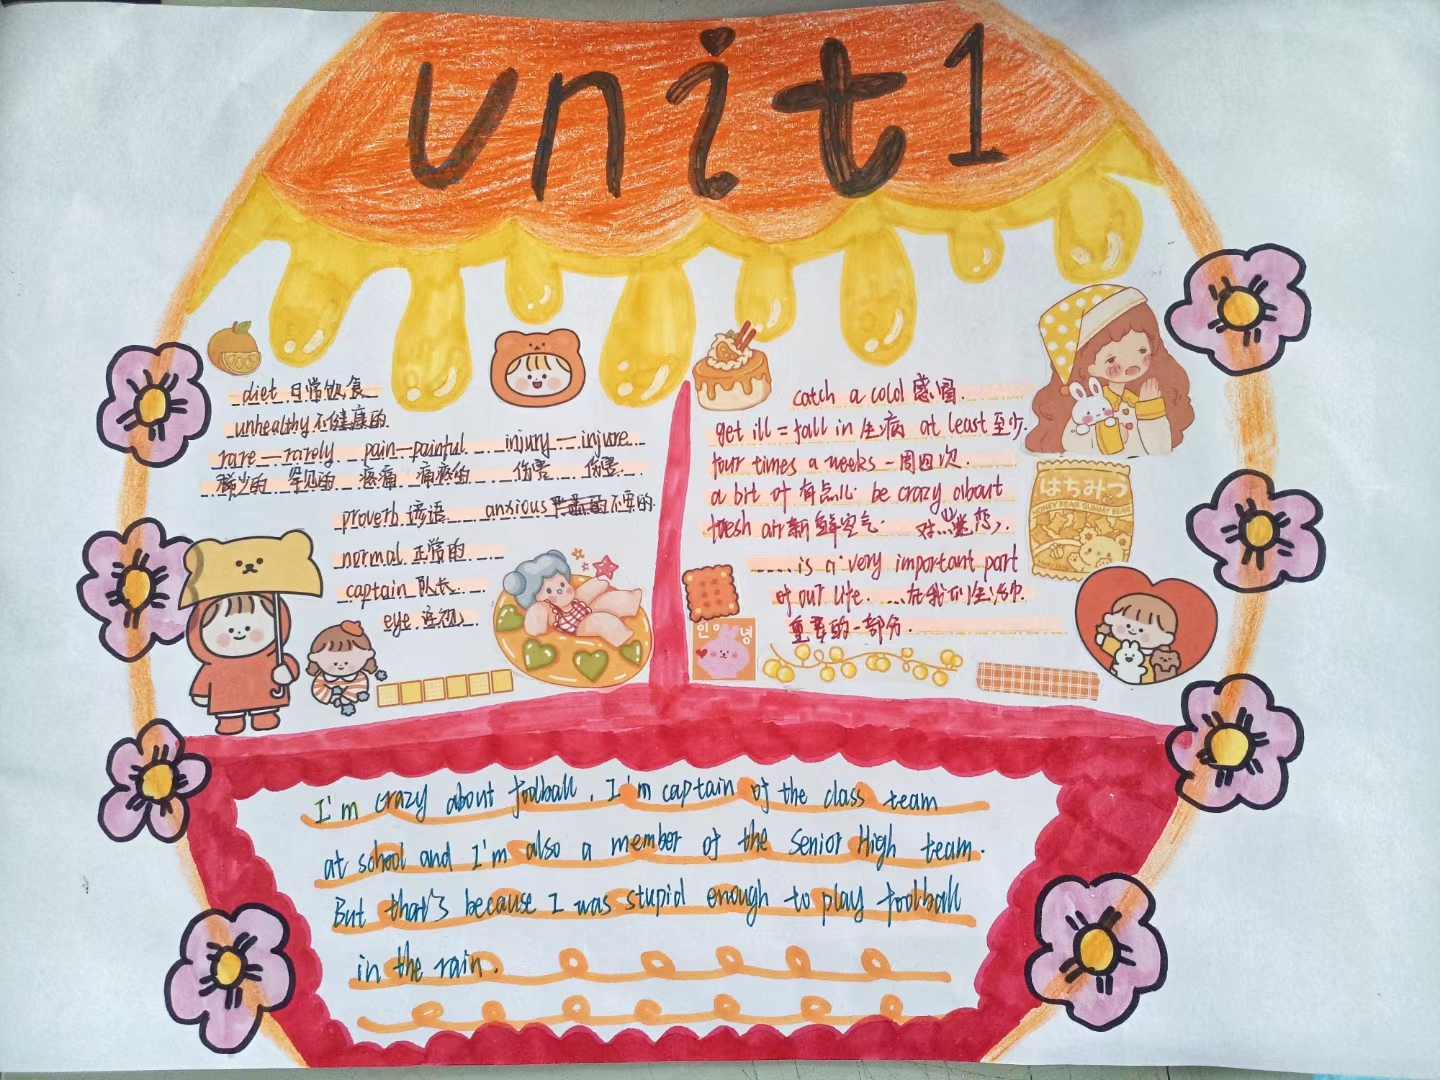 unit 1
diet 日常饮食
unhealthy 不健康的
rare—rarely pain—painful injury—injure
稀少的 罕见的 疼痛 痛疼的 伤害 伤害
proverb 谚语 anxious 不要的
normal 正常的
captain 队长
eye
catch a cold 感冒.
get ill = fall in 生病 at least 至少.
four times a weeks 一周四次.
a bit of 有点儿 be crazy about
fresh air 新鲜空气. 对……迷恋.
.....is a very important part
of our life. ...在我们生活中
重要的一部分.
はちみつ
HONEY BEAR GUMMY BEAR
안녕
I'm crazy about football, I'm captain of the class team
at school and I'm also a member of the Senior High team.
But that's because I was stupid enough to play football
in the rain.